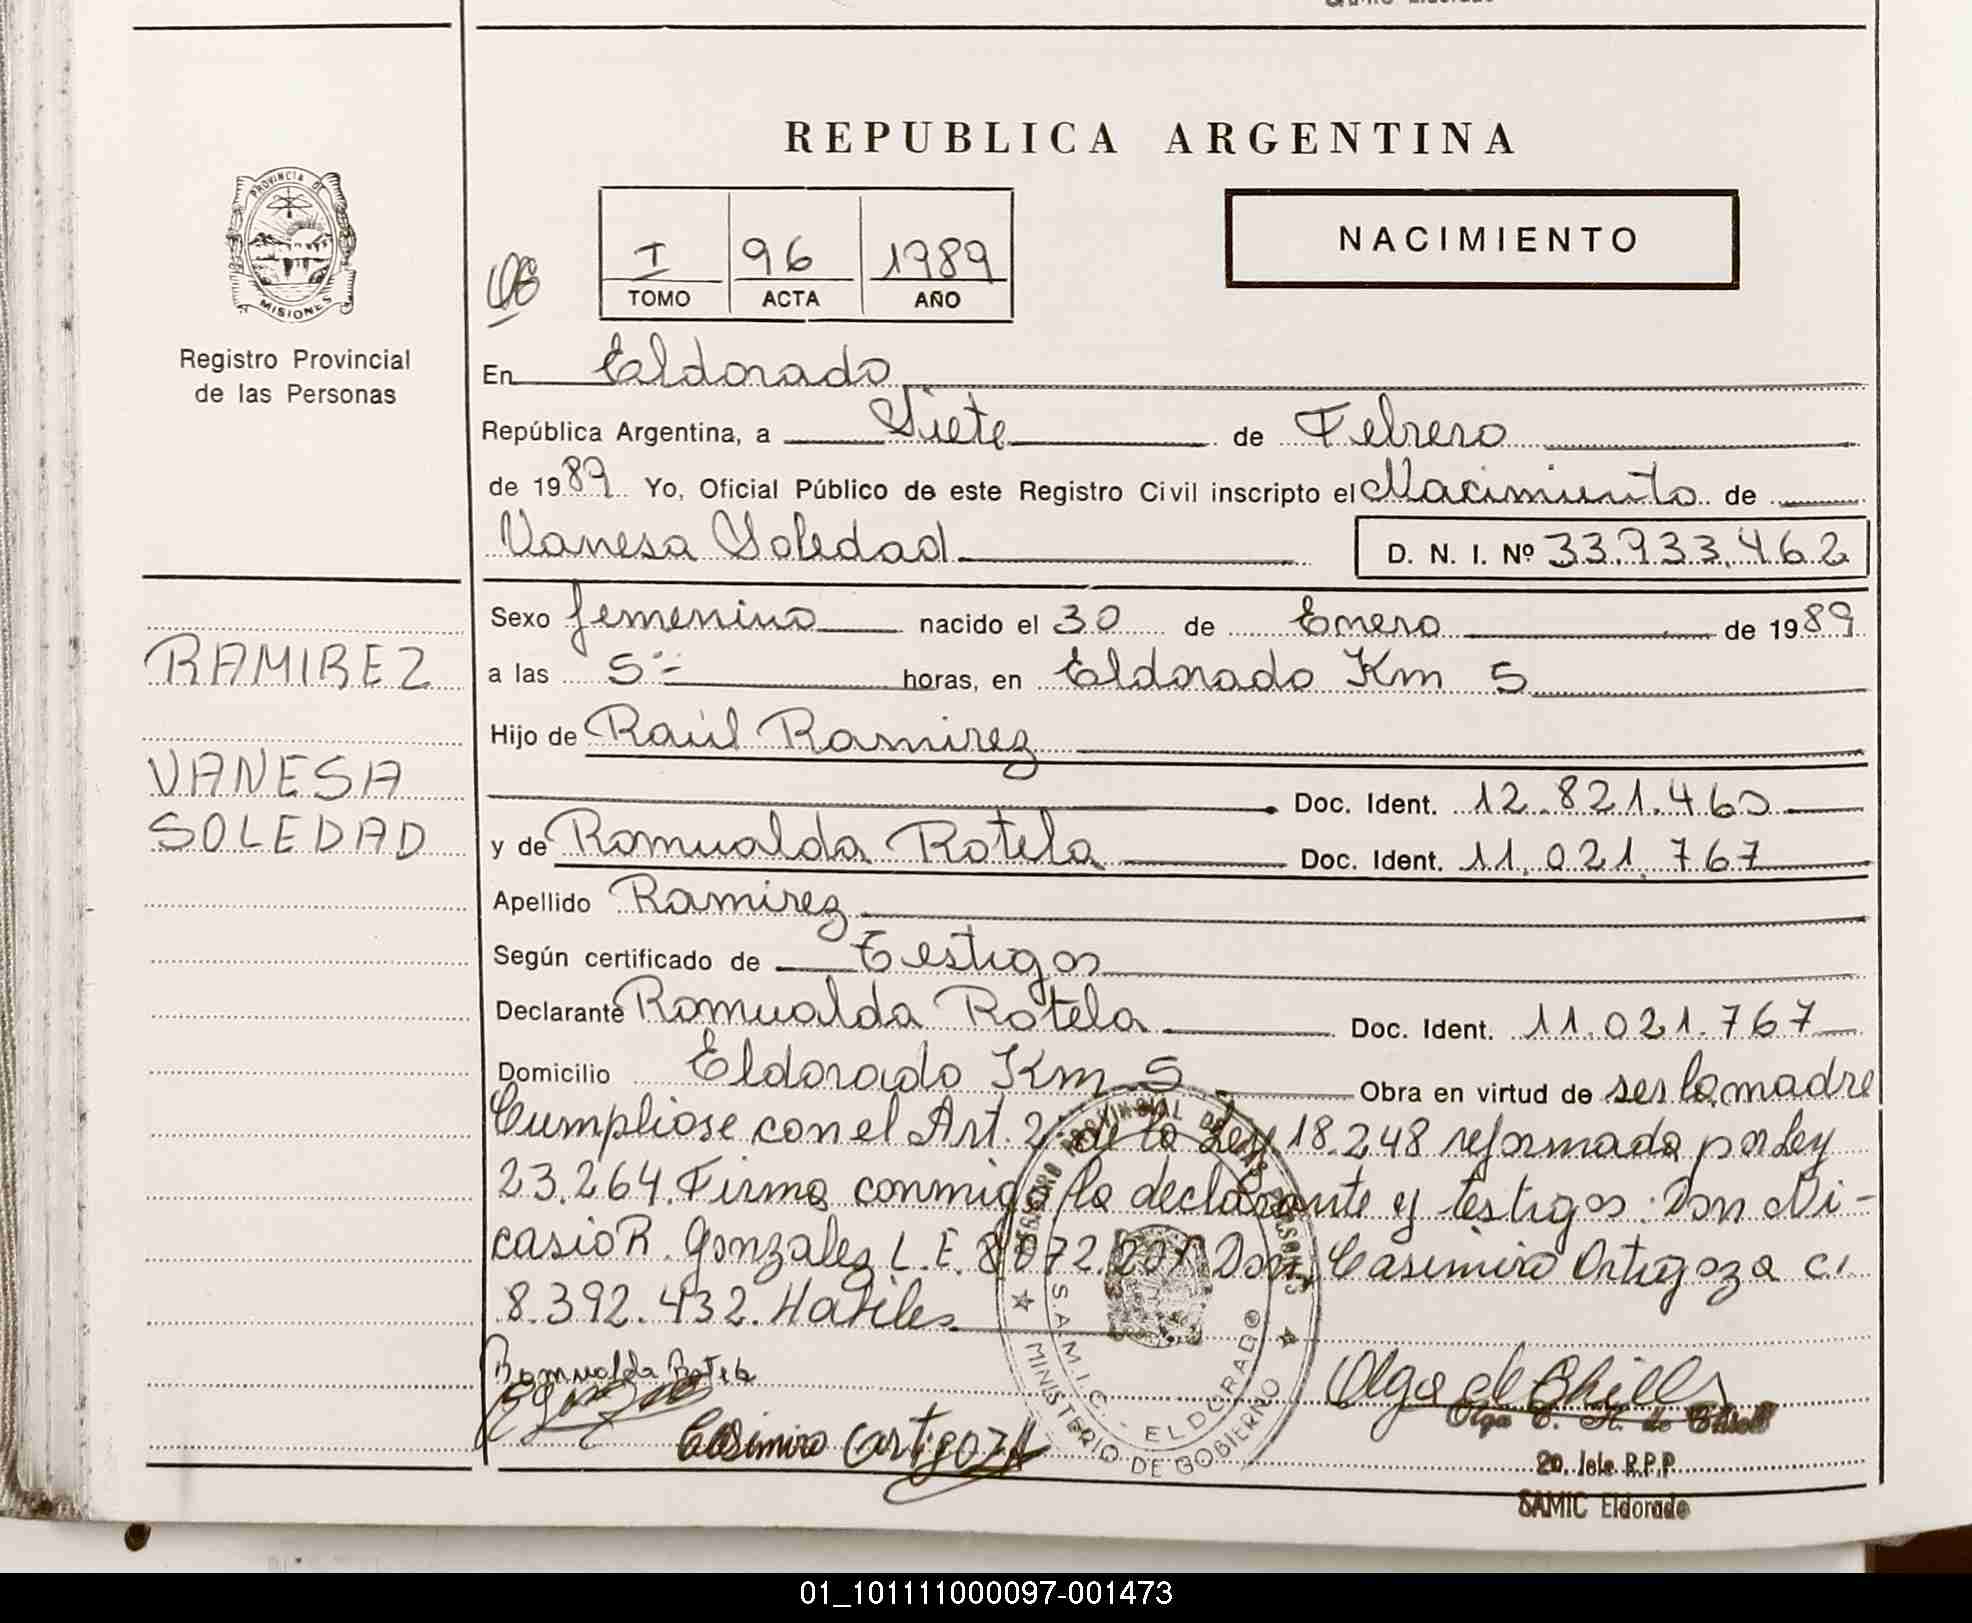 REPUBLICA ARGENTINA
PROVINCIA DE
MISIONES
Registro Provincial
de las Personas
I 96 1989
TOMO ACTA AÑO
NACIMIENTO
En Eldorado
República Argentina, a Siete de Febrero
de 1989 Yo, Oficial Público de este Registro Civil inscripto el Nacimiento de
Vanesa Soledad D. N. I. Nº 33.933.462
RAMIREZ
VANESA
SOLEDAD
Sexo femenino nacido el 30 de Enero de 1989
a las 5 horas, en Eldorado Km 5
Hijo de Raúl Ramirez
Doc. Ident. 12.821.460
y de Romualda Rotela Doc. Ident. 11.021.767
Apellido Ramirez
Según certificado de Testigos
Declarante Romualda Rotela Doc. Ident. 11.021.767
Domicilio Eldorado Km 5 Obra en virtud de ser la madre
Cumpliose con el Art. 2º de la Ley 18.248 reformada por Ley
23.264. Firma conmigo la declarante y testigos: Don Ni-
casio R. Gonzalez L.E. 8.072.201 Don Casimiro Ortigoza C.I.
8.392.432. Habiles
REGISTRO PROVINCIAL DE LAS PERSONAS
S.A.M.I.C. - ELDORADO
MINISTERIO DE GOBIERNO
Romualda Rotela
Casimiro Ortigoza
Olga de
Olga E. H. de
2o. Jefe R.P.P.
SAMIC Eldorado
01_101111000097-001473